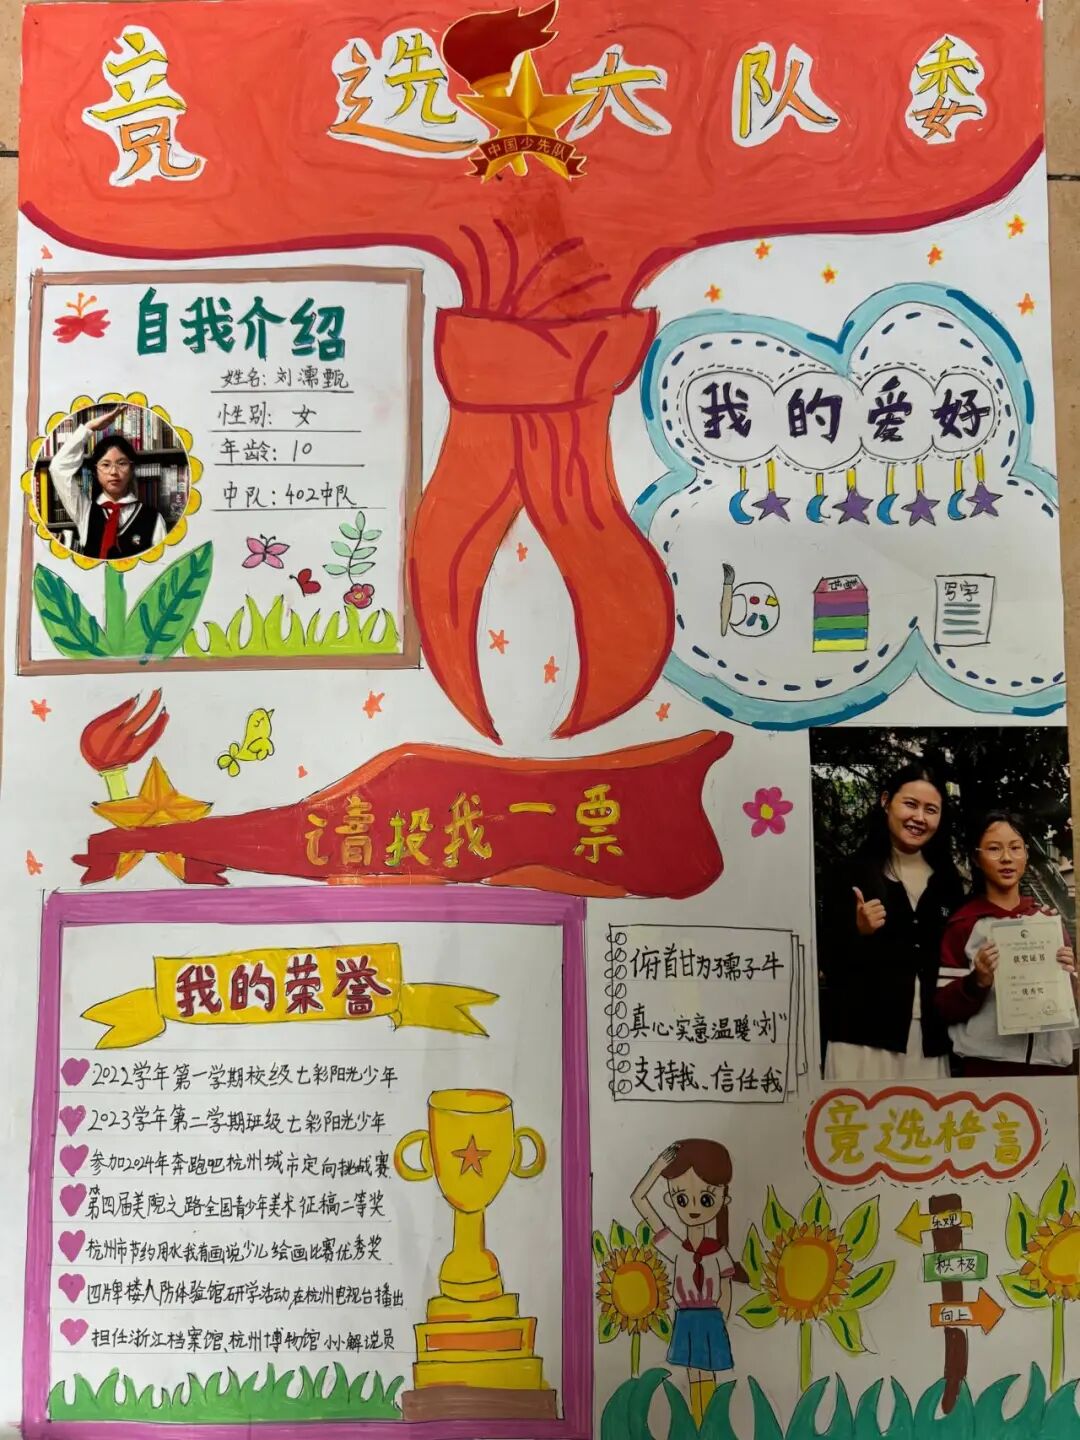 竞选大队委
中国少先队
自我介绍
姓名:刘濡甄
性别:女
年龄:10
中队:402中队
我的爱好
写字
请投我一票
获奖证书
优秀奖
我的荣誉
2022学年第一学期校级七彩阳光少年
2023学年第二学期班级七彩阳光少年
参加2024年奔跑吧杭州城市定向挑战赛
第四届美院之路全国青少年美术征稿二等奖
杭州市节约用水我有画说少儿绘画比赛优秀奖
四牌楼人防体验馆研学活动,在杭州电视台播出
担任浙江档案馆、杭州博物馆小小解说员
俯首甘为孺子牛
真心实意温暖“刘”
支持我、信任我
竞选格言
乐观
积极
向上